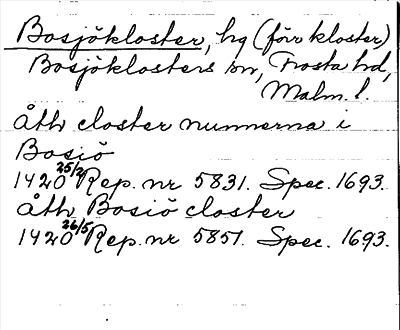 Bosjökloster, hg (förr kloster)
Bosjöklosters sn, Frosta hd,
Malm. l.
åth closter nunnerna i
Bosiö
1420 25/2 Rep. nr 5831. Spec. 1693.
åth Bosiö closter
1420 26/5 Rep. nr 5851. Spec. 1693.